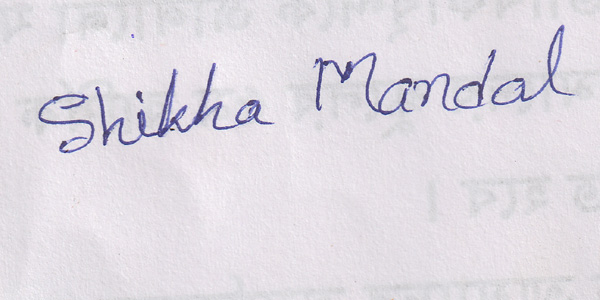 Shikha Mandal